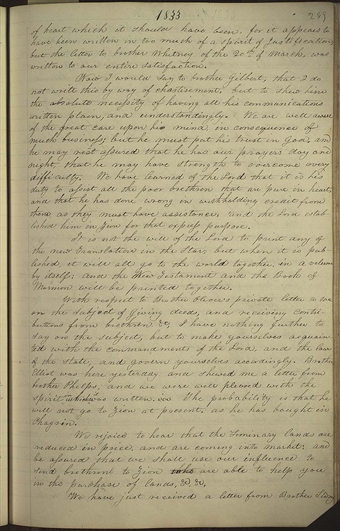 1833
289
of heart which it should have been, for it appears to
have been written in too much of a spirit of justification;
but the letter to brother Whitney of the 20th of March, was
written to our entire satisfaction.
Now I would say to brother Gilbert, that I do
not write this by way of chastisement, but to show him
the absolute necessity of having all his communications
written plain, and understandingly. We are well aware
of the great care upon his mind, in consequence of
much business; but he must put his trust in God, and
he may rest assured that he has our prayers day and
night, that he may have strength to overcome every
difficulty. We have learned of the Lord that it is his
duty to assist all the poor brethren that are pure in heart,
and that he has done wrong in withholding credit from
them as they must have assistance, and the Lord estab-
lished him in Zion for that express purpose.
It is not the will of the Lord to print any of
the new Translation in the Star; but when it is pub-
lished, it will all go to the world together, in a volume
by itself; and the New Testament and the Book of
Mormon will be printed together.
With respect to Brother private letter
on the subject of Giving deeds, and receiving contri-
butions from brethren &c, I have nothing further to
say on the subject, but to make yourselves acquain-
ted with the commandments of the Lord, and the laws
of the State, and govern yourselves accordingly. Brother
Elliot was here yesterday and shewed me a letter from
brother Phelps, and we were well pleased with the
spirit it was written in. The probability is that he
will not go to Zion at present, as he has bought in
Chagrin.
We rejoice to hear that the Seminary lands are
reduced in price, and are coming into market: and
be assured that we shall use our influence to
send brethren to Zion who are able to help you
in the purchase of lands, &c &c.
We have just received a letter from Brother